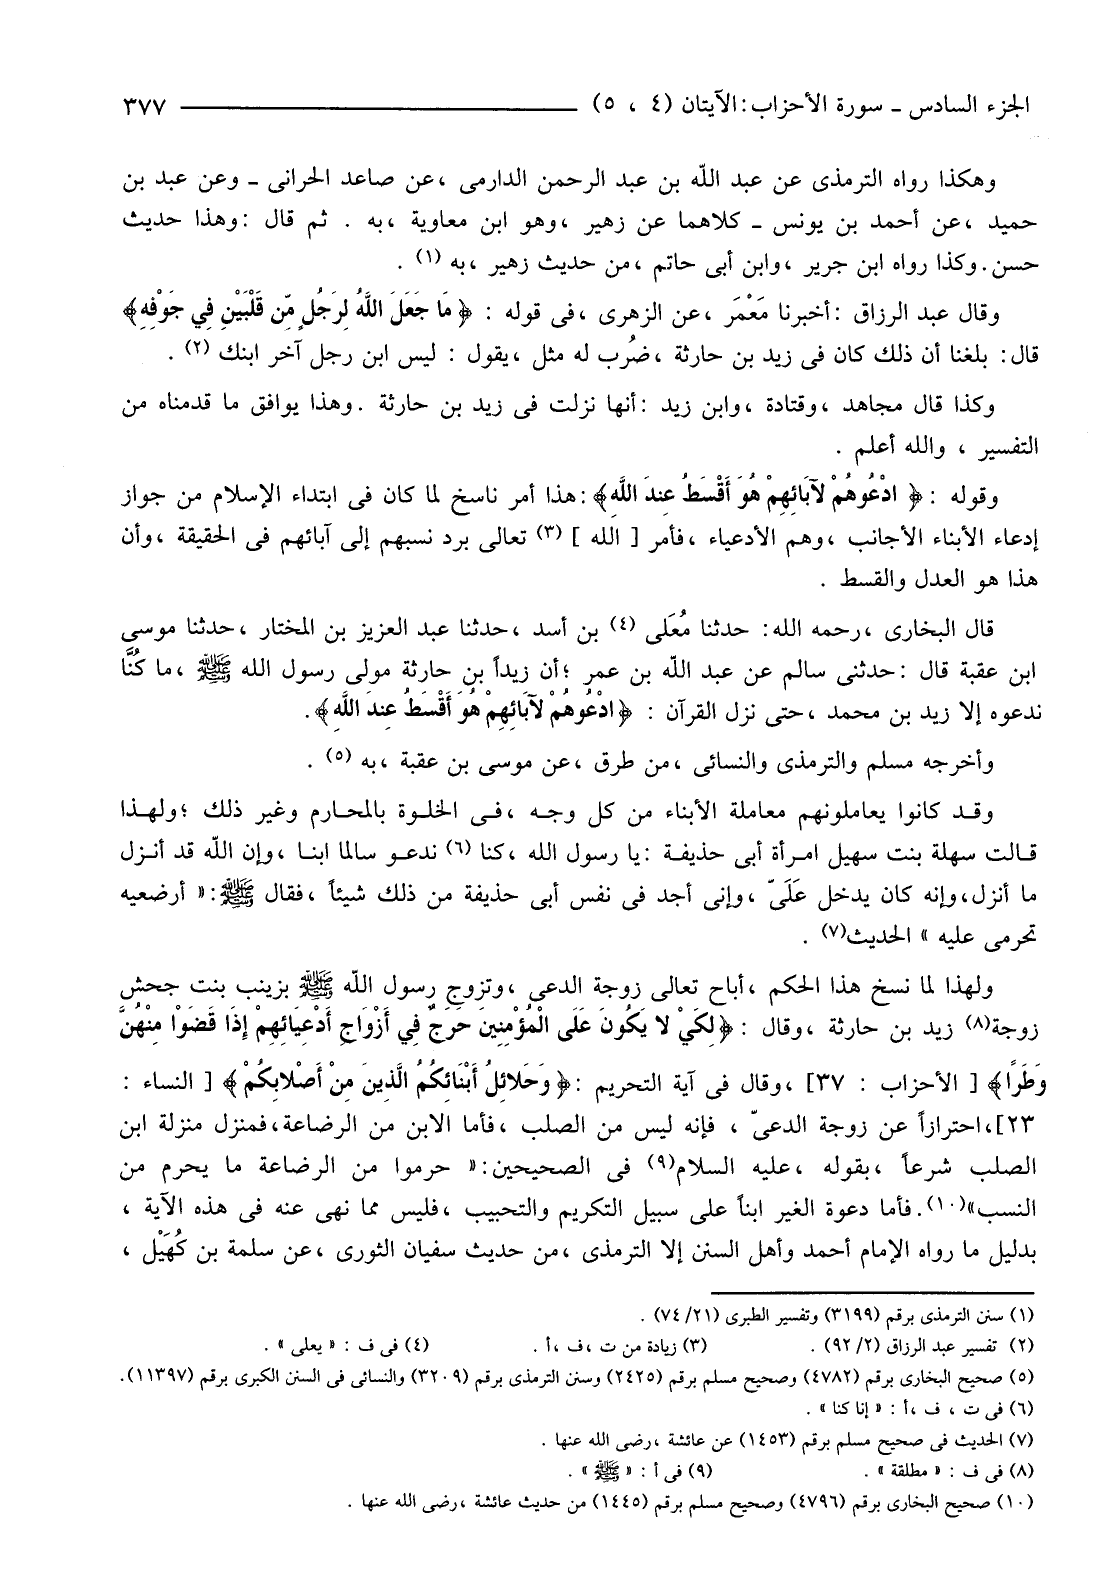 الجزء السادس ـ سورة الأحزاب : الآيتان (٤ ، ٥) ــــــــــــــــــــ ٣٧٧
وهكذا رواه الترمذى عن عبد الله بن عبد الرحمن الدارمى ، عن صاعد الحرانى ـ وعن عبد بن
حميد ، عن أحمد بن يونس ـ كلاهما عن زهير ، وهو ابن معاوية ، به . ثم قال : وهذا حديث
حسن . وكذا رواه ابن جرير ، وابن أبى حاتم ، من حديث زهير ، به (١) .
وقال عبد الرزاق : أخبرنا مَعْمَر ، عن الزهرى ، فى قوله : ﴿ مَا جَعَلَ اللَّهُ لِرَجُلٍ مِّن قَلْبَيْنِ فِي جَوْفِهِ ﴾
قال : بلغنا أن ذلك كان فى زيد بن حارثة ، ضُرب له مثل ، يقول : ليس ابن رجل آخر ابنك (٢) .
وكذا قال مجاهد ، وقتادة ، وابن زيد : أنها نزلت فى زيد بن حارثة . وهذا يوافق ما قدمناه من
التفسير ، والله أعلم .
وقوله : ﴿ ادْعُوهُمْ لآبَائِهِمْ هُوَ أَقْسَطُ عِندَ اللَّهِ ﴾ : هذا أمر ناسخ لما كان فى ابتداء الإسلام من جواز
إدعاء الأبناء الأجانب ، وهم الأدعياء ، فأمر [ الله ] (٣) تعالى برد نسبهم إلى آبائهم فى الحقيقة ، وأن
هذا هو العدل والقسط .
قال البخارى ، رحمه الله : حدثنا مُعَلى (٤) بن أسد ، حدثنا عبد العزيز بن المختار ، حدثنا موسى
ابن عقبة قال : حدثنى سالم عن عبد الله بن عمر ؛ أن زيداً بن حارثة مولى رسول الله ﷺ ، ما كُنَّا
ندعوه إلا زيد بن محمد ، حتى نزل القرآن : ﴿ ادْعُوهُمْ لآبَائِهِمْ هُوَ أَقْسَطُ عِندَ اللَّهِ ﴾ .
وأخرجه مسلم والترمذى والنسائى ، من طرق ، عن موسى بن عقبة ، به (٥) .
وقد كانوا يعاملونهم معاملة الأبناء من كل وجه ، فى الخلوة بالمحارم وغير ذلك ؛ ولهذا
قالت سهلة بنت سهيل امرأة أبى حذيفة : يا رسول الله ، كنا (٦) ندعو سالما ابنا ، وإن الله قد أنزل
ما أنزل ، وإنه كان يدخل عَلَىّ ، وإنى أجد فى نفس أبى حذيفة من ذلك شيئاً ، فقال ﷺ : « أرضعيه
تحرمى عليه » الحديث (٧) .
ولهذا لما نسخ هذا الحكم ، أباح تعالى زوجة الدعى ، وتزوج رسول الله ﷺ بزينب بنت جحش
زوجة (٨) زيد بن حارثة ، وقال : ﴿ لِكَيْ لا يَكُونَ عَلَى الْمُؤْمِنِينَ حَرَجٌ فِي أَزْوَاجِ أَدْعِيَائِهِمْ إِذَا قَضَوْا مِنْهُنَّ
وَطَرًا ﴾ [ الأحزاب : ٣٧ ] ، وقال فى آية التحريم : ﴿ وَحَلائِلُ أَبْنَائِكُمُ الَّذِينَ مِنْ أَصْلابِكُمْ ﴾ [ النساء :
٢٣ ] ، احترازاً عن زوجة الدعىّ ، فإنه ليس من الصلب ، فأما الابن من الرضاعة ، فمنزل منزلة ابن
الصلب شرعاً ، بقوله ، عليه السلام (٩) فى الصحيحين : « حرموا من الرضاعة ما يحرم من
النسب » (١٠) . فأما دعوة الغير ابناً على سبيل التكريم والتحبيب ، فليس مما نهى عنه فى هذه الآية ،
بدليل ما رواه الإمام أحمد وأهل السنن إلا الترمذى ، من حديث سفيان الثورى ، عن سلمة بن كُهَيْل ،
(١) سنن الترمذى برقم (٣١٩٩) وتفسير الطبرى (٢١/ ٧٤) .
(٢) تفسير عبد الرزاق (٢/ ٩٢) . (٣) زيادة من ت ، ف ، أ . (٤) فى ف : « يعلى » .
(٥) صحيح البخارى برقم (٤٧٨٢) وصحيح مسلم برقم (٢٤٢٥) وسنن الترمذى برقم (٣٢٠٩) والنسائى فى السنن الكبرى برقم (١١٣٩٧) .
(٦) فى ت ، ف ، أ : « إنا كنا » .
(٧) الحديث فى صحيح مسلم برقم (١٤٥٣) عن عائشة ، رضى الله عنها .
(٨) فى ف : « مطلقة » . (٩) فى أ : « ﷺ » .
(١٠) صحيح البخارى برقم (٤٧٩٦) وصحيح مسلم برقم (١٤٤٥) من حديث عائشة ، رضى الله عنها .